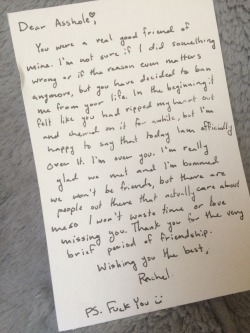 Dear Asshole♡,
You were a real good friend of
mine. I'm not sure if I did something
wrong or if the reason even matters
anymore, but you have decided to ban
me from your life. In the beginning it
felt like you had ripped my heart out
and chewed on it for awhile, but I'm
happy to say that today I am officially
over it. I'm over you. I'm really
glad we met and I'm bummed
we won't be friends, but there are
people out there that actually care about
me so I won't waste time or love
missing you. Thank you for the very
brief period of friendship.
Wishing you the best,
Rachel
PS. Fuck You ☺